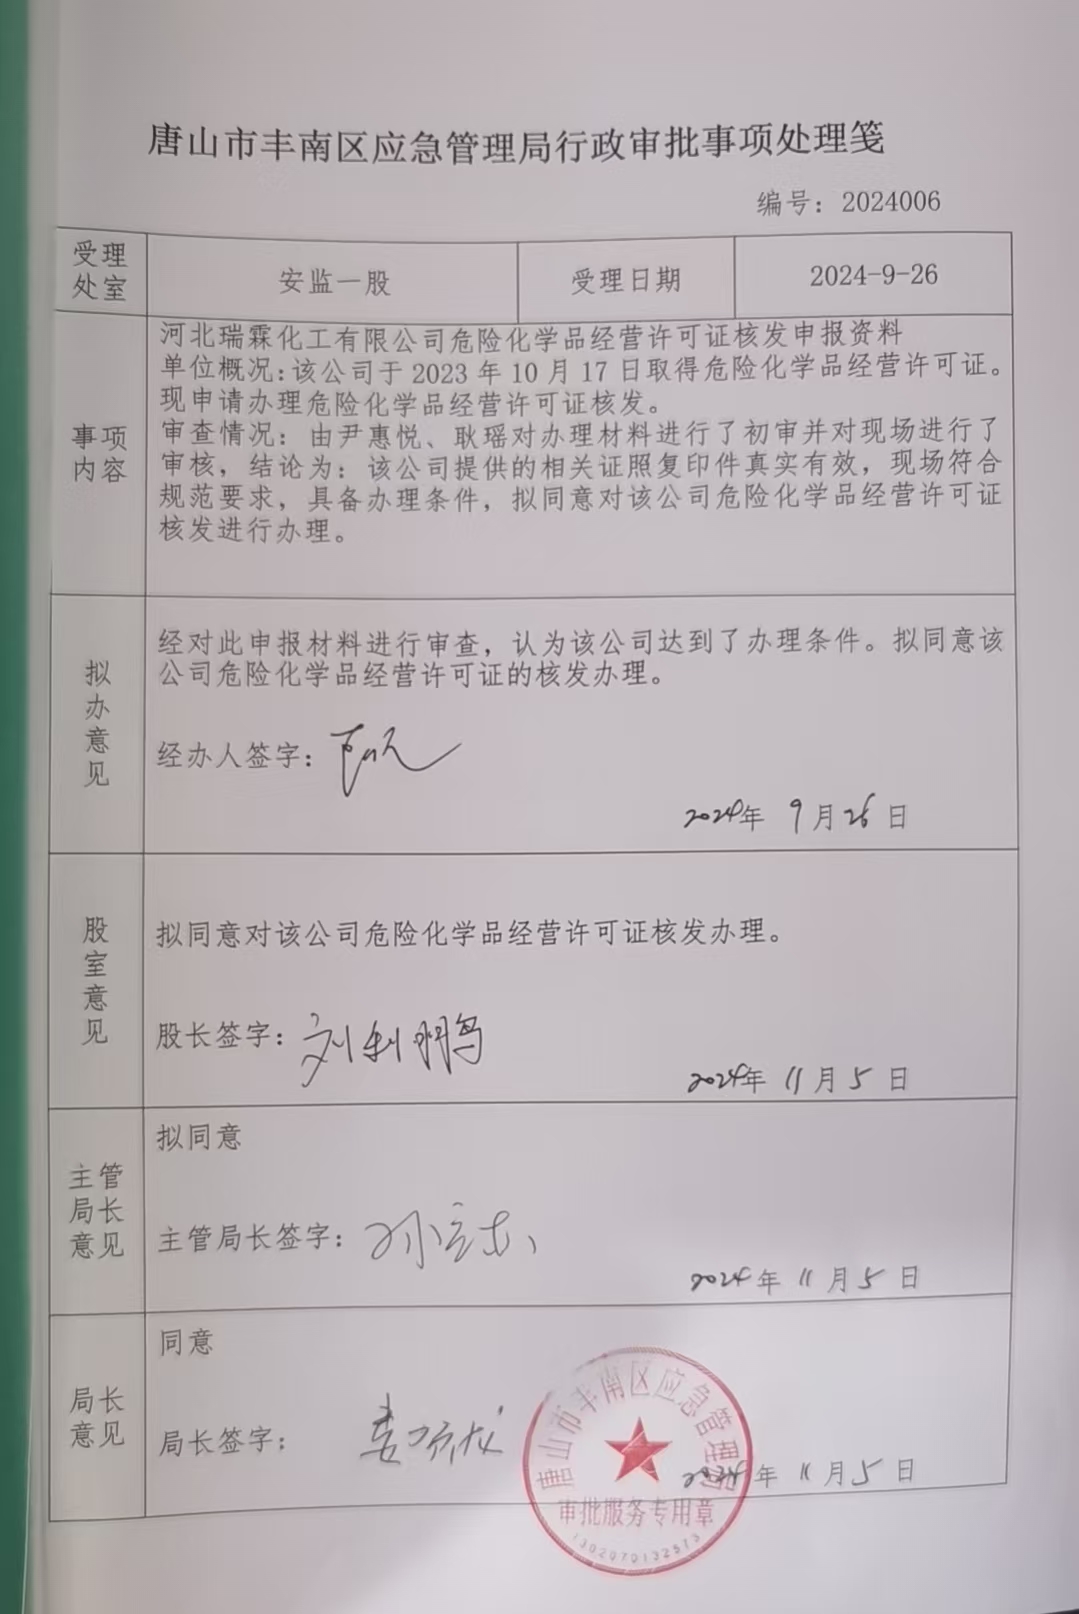 唐山市丰南区应急管理局行政审批事项处理笺
编号：2024006
受理处室
安监一股
受理日期
2024-9-26
事项内容
河北瑞霖化工有限公司危险化学品经营许可证核发申报资料
单位概况：该公司于 2023 年 10 月 17 日取得危险化学品经营许可证。
现申请办理危险化学品经营许可证核发。
审查情况：由尹惠悦、耿瑶对办理材料进行了初审并对现场进行了
审核，结论为：该公司提供的相关证照复印件真实有效，现场符合
规范要求，具备办理条件，拟同意对该公司危险化学品经营许可证
核发进行办理。
拟办意见
经对此申报材料进行审查，认为该公司达到了办理条件。拟同意该
公司危险化学品经营许可证的核发办理。
经办人签字：
2024年 9月26日
股室意见
拟同意对该公司危险化学品经营许可证核发办理。
股长签字：刘利鹏
2024年 11月5日
主管局长意见
拟同意
主管局长签字：
2024年 11月5日
局长意见
同意
局长签字：
2024年 11月5日
唐山市丰南区应急管理局
审批服务专用章
1302070132573